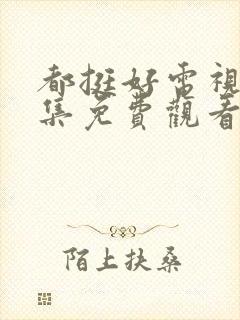 都挺好電視
集免費觀看
陌上扶桑